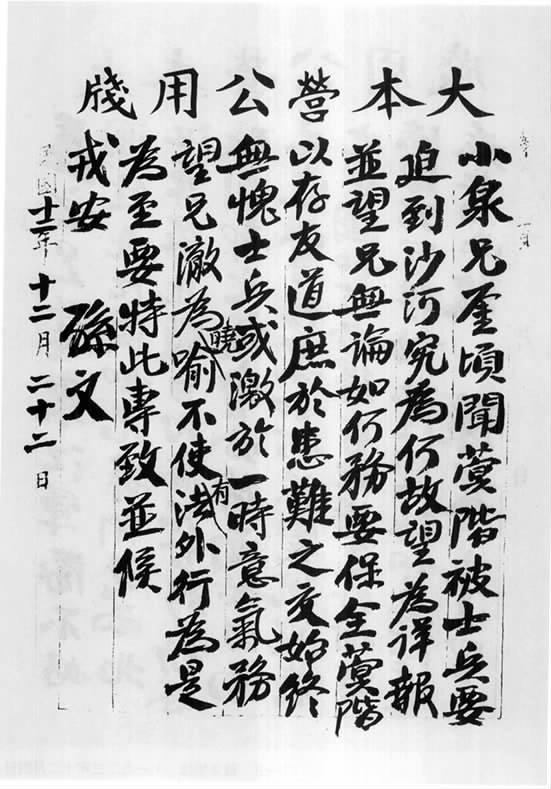 大本營公用牋
第 頁
小泉兄鑒頃聞蓂階被士兵要
迫到沙河究為何故望為詳報
並望兄無論如何務要保全蓂階
以存友道庶於患難之交始終
無愧士兵或激於一時意氣務
望兄澈為曉喻不使有法外行為是
為至要特此專致並候
戎安 孫文
民國十二年十二月二十二日